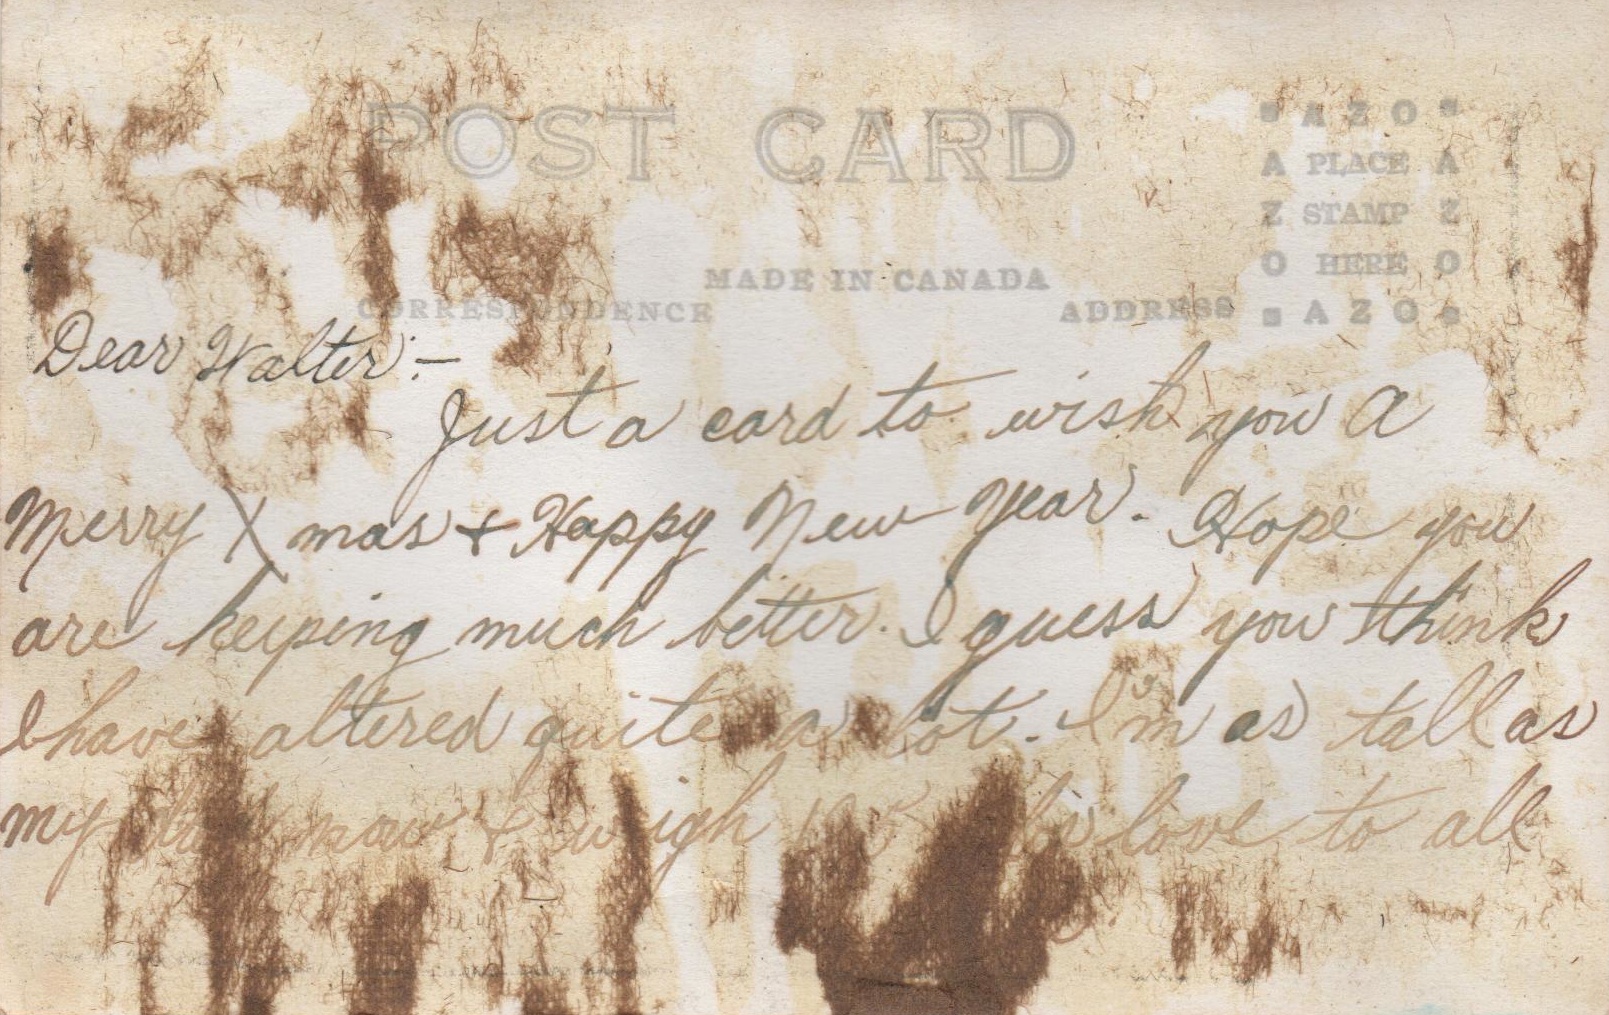 POST CARD
A Z O
A PLACE A
Z STAMP Z
O HERE O
A Z O
MADE IN CANADA
CORRESPONDENCE
ADDRESS
Dear Walter:—
Just a card to wish you A
Merry Xmas + Happy New Year. Hope you
are keeping much better. I guess you think
I have altered quite a lot. I'm as tall as
my dad now & weigh love to all